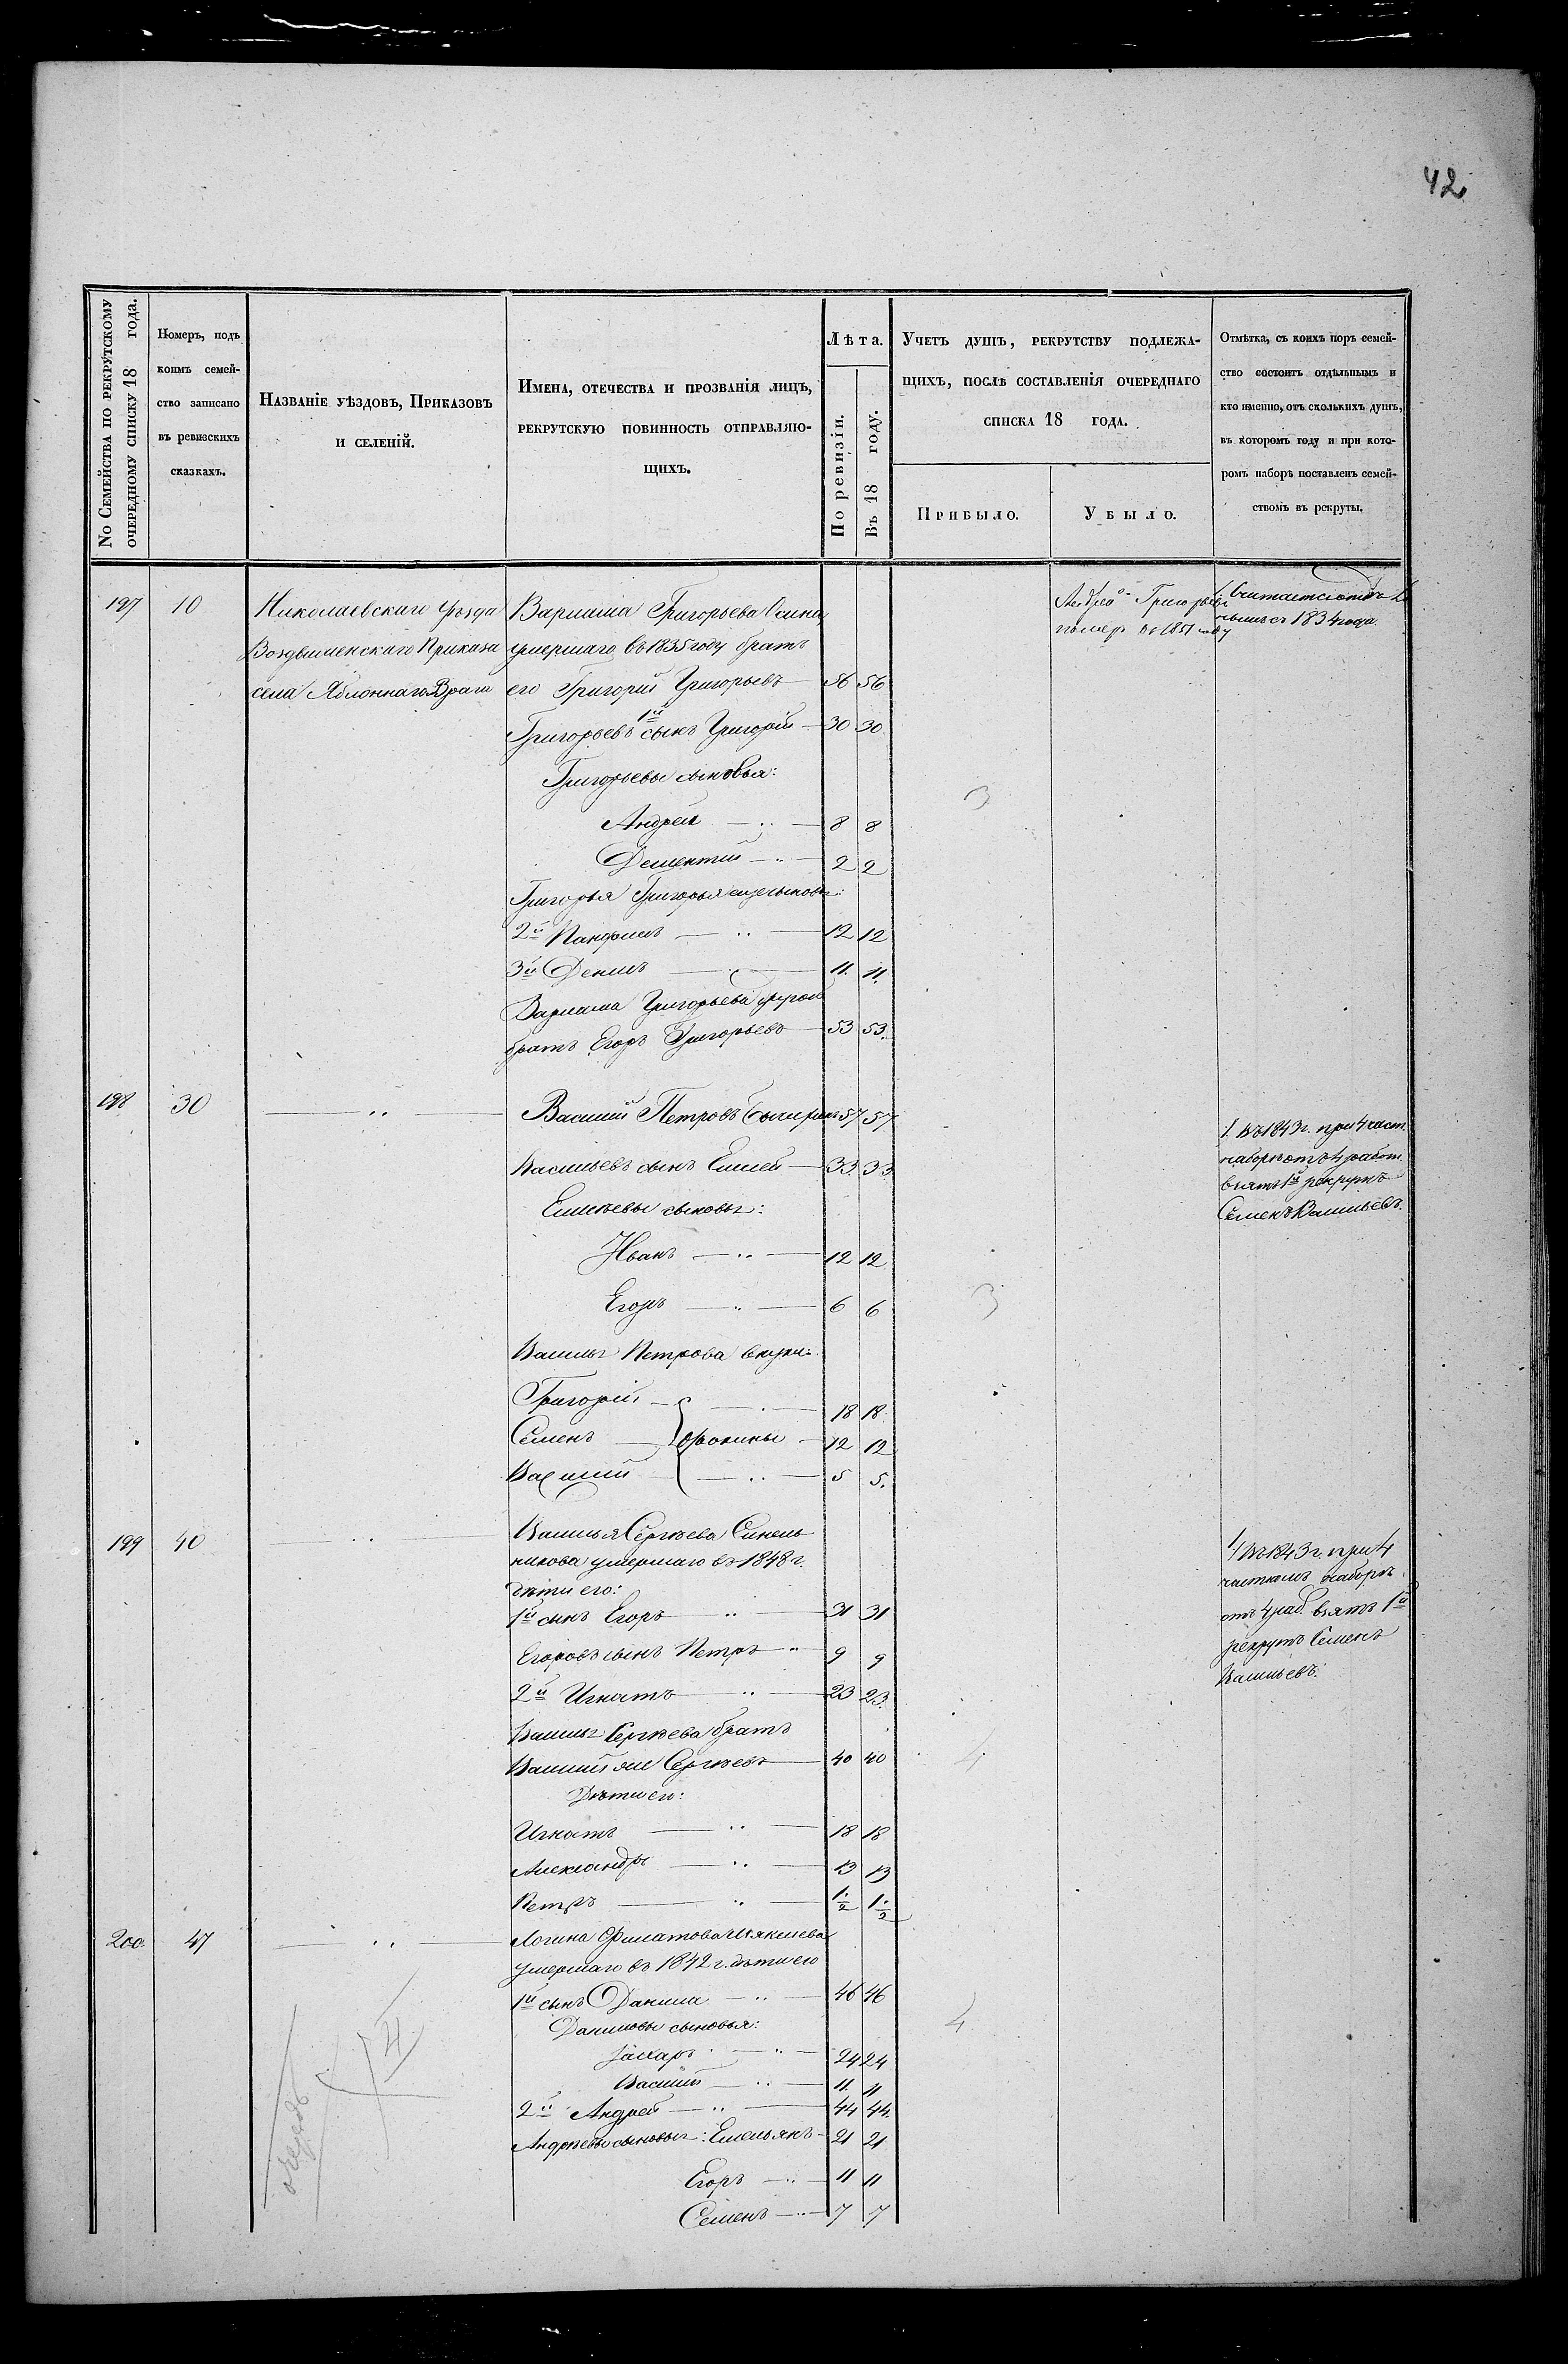 42
№ Семейства по рекрутскому
очередному списку 18 года.
Номеръ, подъ
коимъ семей-
ство записано
въ ревизскихъ
сказкахъ.
Названіе уѣздовъ, Приказовъ
и селеній.
Имена, отечества и прозванія лицъ,
рекрутскую повинность отправляю-
щихъ.
Лѣта.
По ревизіи.
Въ 18 году.
Учетъ душъ, рекрутству подлежа-
щихъ, послѣ составленія очереднаго
списка 18 года.
Прибыло.
Убыло.
Отмѣтка, съ коихъ поръ семей-
ство состоитъ отдѣльнымъ и
кто именно, отъ сколькихъ душъ,
въ которомъ году и при кото-
ромъ наборѣ поставленъ семей-
ствомъ въ рекруты.
197 10 Николаевскаго Уѣзда Григорьева
Воздвиженскаго Приказа умершаго въ 1835 году братъ
села Яблоннаго Врага его Григорій Григорьевъ 56 56
Григорьевъ 1й сынъ Григорій 30 30
Григорьевы сыновья:
Андрей 8 8
Дементій 2 2
3
Григорья Григорья еще сыновья:
2й Панфилъ 12 12
3й Денисъ 11. 11.
Григорьева другой
братъ Егоръ Григорьевъ 53 53.
Григорьевъ
въ 1851 году
съ 1834 года.
198 30 Василій Петровъ 57 57
Васильевъ сынъ Елисей 33. 33.
Елисѣевы сыновья:
Иванъ 12 12
Егоръ 6 6
3
Василья Петрова внуки:
Григорій 18 18.
Семенъ Ѳокины 12 12
Василій 5 5.
1. Въ 1843 г. при 4 част.
наборѣ отъ 4 работ.
взятъ 1й рекрутъ
Семенъ Васильевъ.
199 40 Василья Сергѣева Синель
никова умершаго въ 1848 г.
дѣти его:
1й сынъ Егоръ 31 31
Егоровъ сынъ Петръ 9 9
2й Игнатъ 23 23.
Василья Сергѣева братъ
Василій же Сергѣевъ 40 40
4
Дѣти его:
Игнатъ 18 18
Александръ 13 13
Петръ 1/2 1/2
1 Въ 1843 г. при 4
частномъ наборѣ
отъ 4 раб. взятъ 1й
рекрутъ Семенъ
Васильевъ.
200. 47 Логина Филатова
умершаго въ 1842 г. дѣти его
1й сынъ Данила 46 46
Даниловы сыновья:
4
Захаръ 24 24
Василій 11. 11
2й Андрей 44 44.
Андрѣевы сыновья: Емельянъ 21 21
Егоръ 11 11
Семенъ 7 7